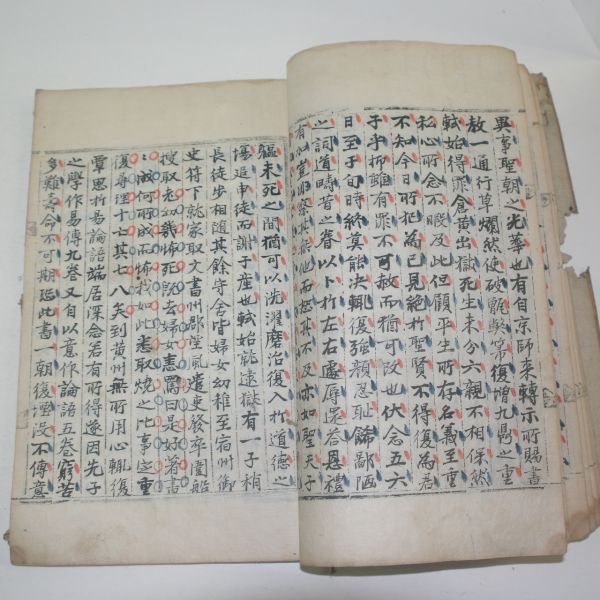 異事聖朝之光華也有自京師來轉示所賜書
教一通行草爛然使破甑弊帚復增九鼎之重
軾始得罪倉黃出獄死生未分六親不相保然
私心所念不暇及此但顧平生所存名義至重
不知今日所犯為已見絕於聖賢不得復為君
子乎抑雖有罪不可赦而猶可改也伏念五六
日至于旬時終莫能決輒復強顏忍恥飾鄙陋
之詞道疇昔之眷以卜於左右遽辱還答恩禮
有加豈非察其無他而恕其不及亦如聖天子
軀未死之間猶可以洗濯磨治復入於道德之
場追申徒而謝子産也軾始就逮獄有一子稍
長徒步相隨其餘守舍皆婦女幼稚至宿州御
史符下就家取文書州郡望風遣吏發卒圍船
搜取老幼幾怖死既去婦女恚罵曰是好著書
書成何所得而怖我如此悉取燒之比事定重
復尋理十亡其七八矣到黄州無所用心輒復
覃思於易論語端居深念若有所得遂因先子
之學作易傳九卷又自以意作論語五卷窮苦
多難壽命不可期恐此書一朝復湮没不傳意